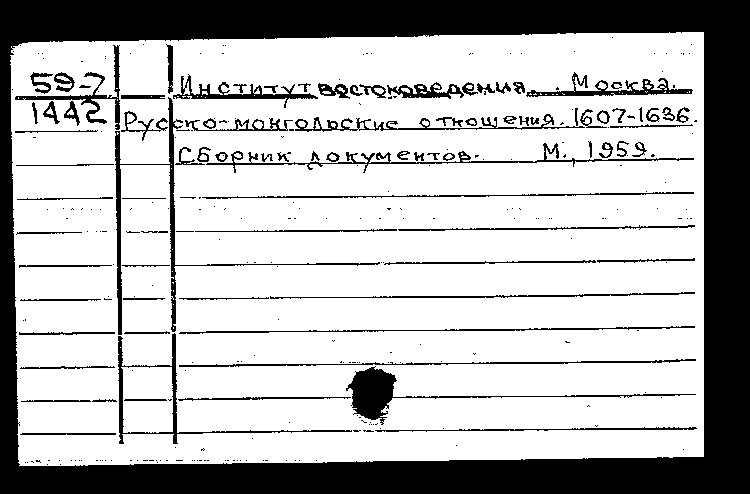 59-7 Институт востоковедения. Москва.
1442 Русско-монгольские отношения. 1607-1636.
Сборник документов. М., 1959.